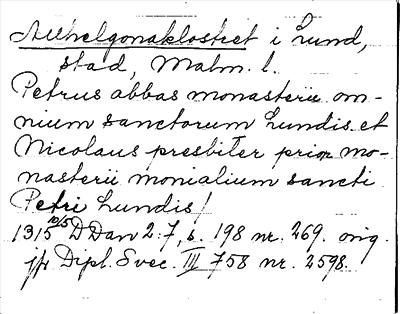 Allhelgonaklostret i Lund,
stad, Malm. l.
Petrus abbas monasterii om-
nium sanctorum Lundis et
Nicolaus presbiter prior mo-
nasterii monialium sancti
Petri Lundis/
1315 10/5 DDan 2:7, s. 198 nr. 269. orig.
jfr Dipl. Svec. III 758 nr. 2598.